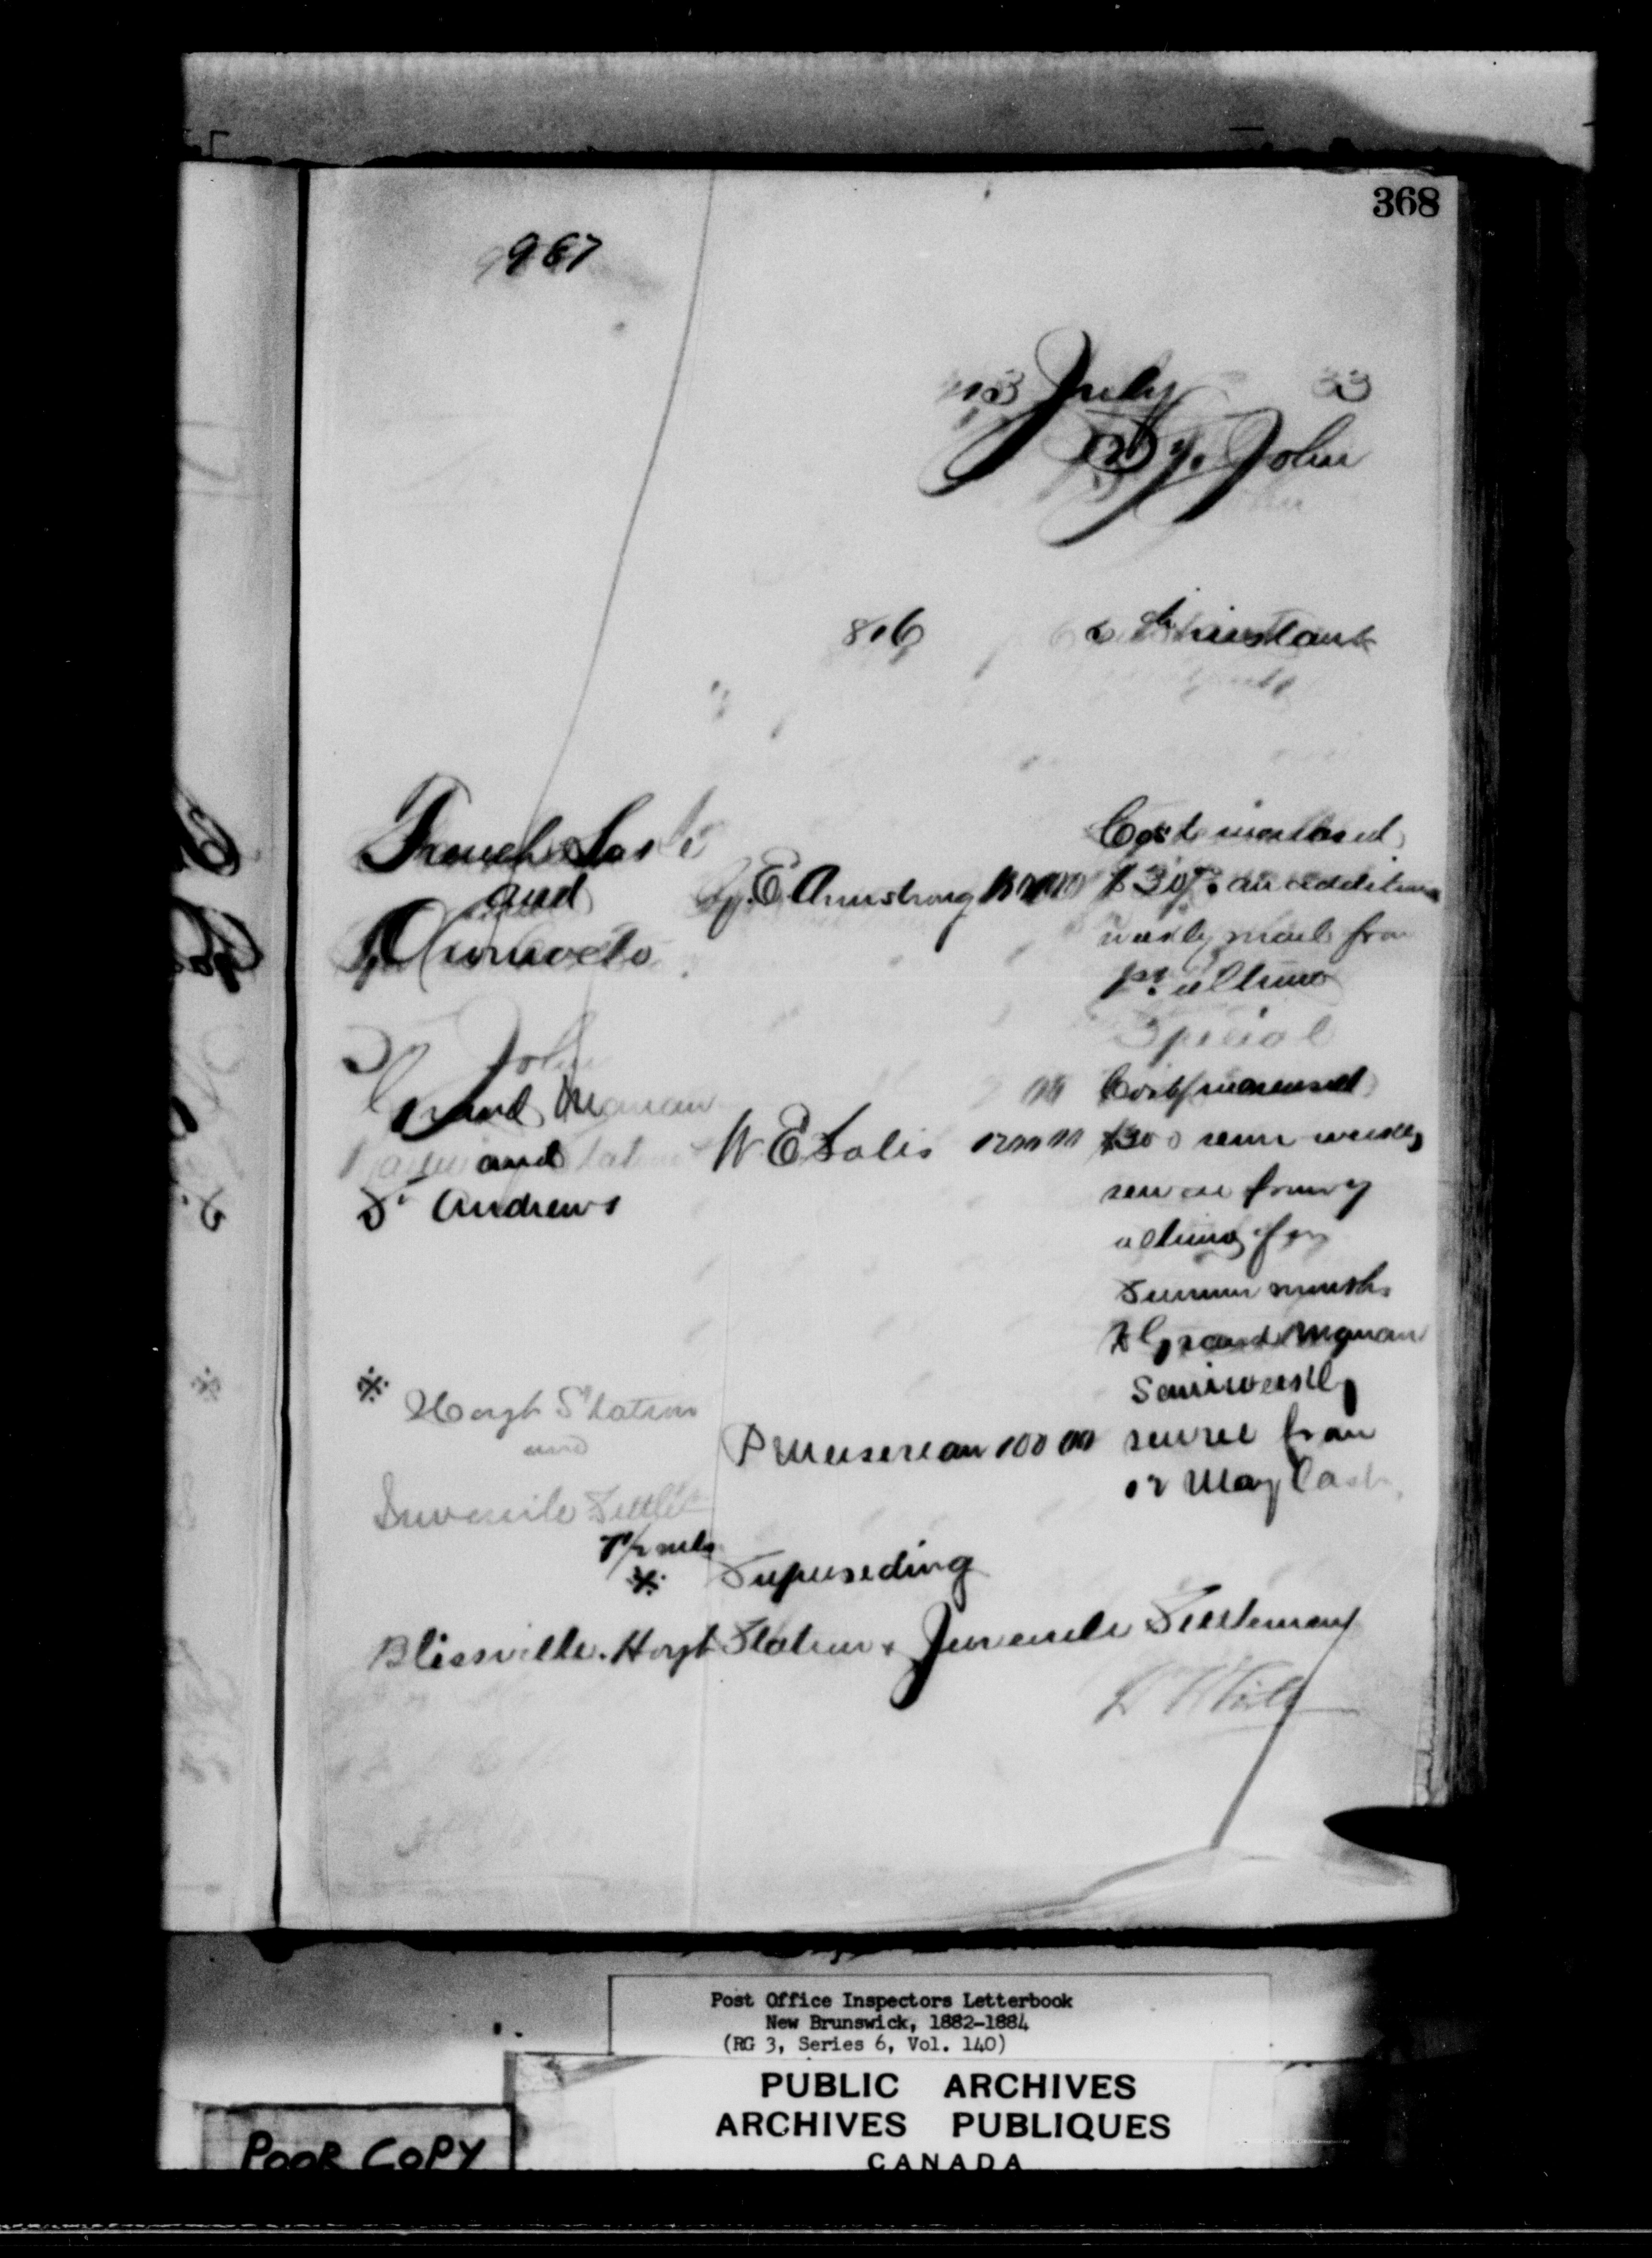 368
967
13 July 83
St. John
816 6th instant
French Lake
and
Oromocto
G. E. Armstrong
Cost increased
$30 pr an additional
weekly mail from
1st ultimo
Special
St John
Grand Manan
and
St Andrews
W E Solis
Cost increased
$300 semi weekly
service from
ultimo for
summer months
to Grand Manan
※ Hoyt Station
and
Juvenile Settlt
7 1/2 mls
P Mersereau 100 00
Semiweekly
service from
12 May last
※ Superseding
Blissville. Hoyt Station & Juvenile Settlement
Post Office Inspectors Letterbook
New Brunswick, 1882-1884
(RG 3, Series 6, Vol. 140)
PUBLIC ARCHIVES
ARCHIVES PUBLIQUES
CANADA
POOR COPY